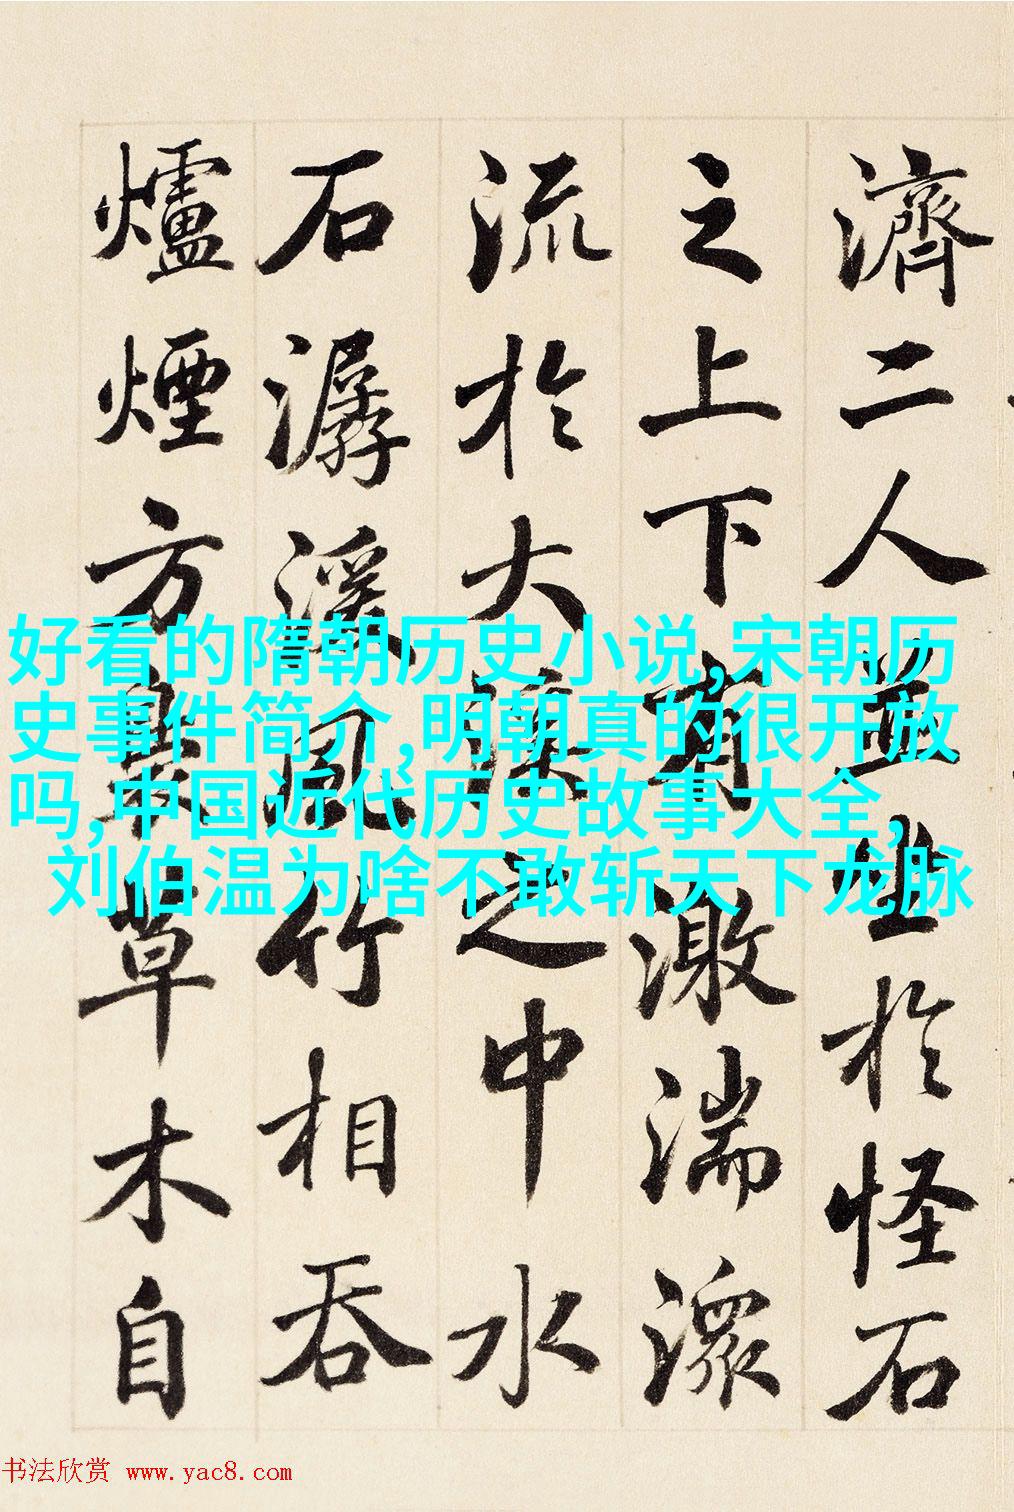 濟二人並坐於怪石
之上下有激湍潨
流於大溪之中水
石潺湲風竹相吞
爐煙方裊草木自
好看的隋朝历史小说,宋朝历
史事件简介,明朝真的很开放
吗,中国近代历史故事大全,
刘伯温为啥不敢斩天下龙脉
书法欣赏 www.yac8.com